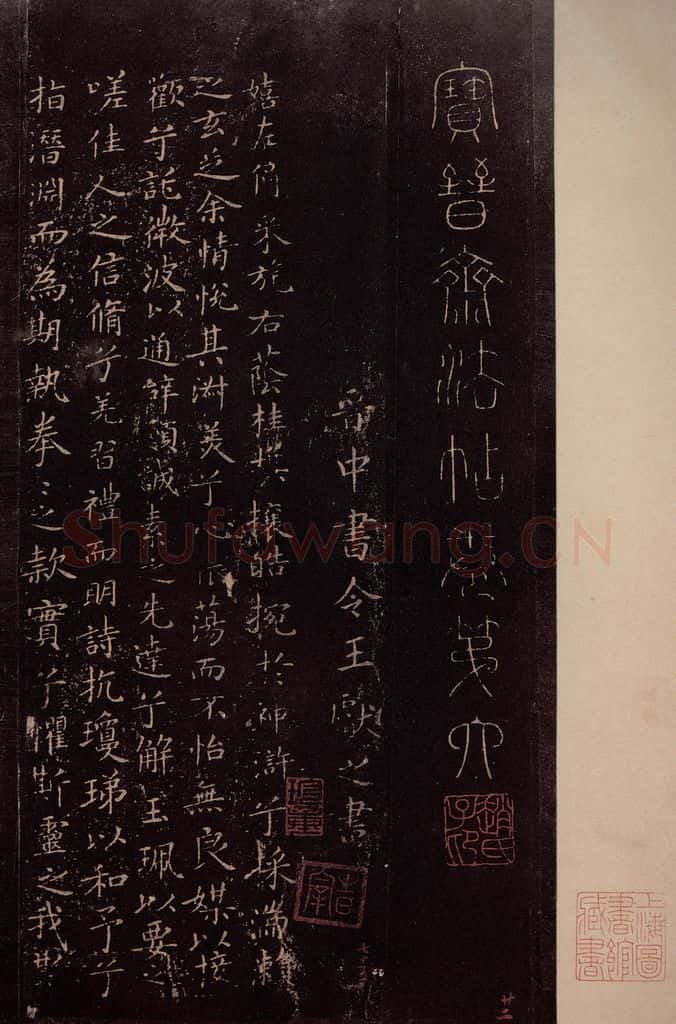 上海圖書館藏書
寶晉齋法帖卷第六
晉中書令王獻之書
嬉左倚采旄右蔭桂旗攘皓捥於神滸兮採湍瀨
之玄芝余情悅其淑美兮心振蕩而不怡無良媒以接
歡兮託微波以通辭願誠素之先達兮解玉珮以要之
嗟佳人之信脩兮羌習禮而明詩抗瓊珶以和予兮
指潛淵而為期執拳〻之款實兮懼斯靈之我欺
廿二
Shufawang.CN